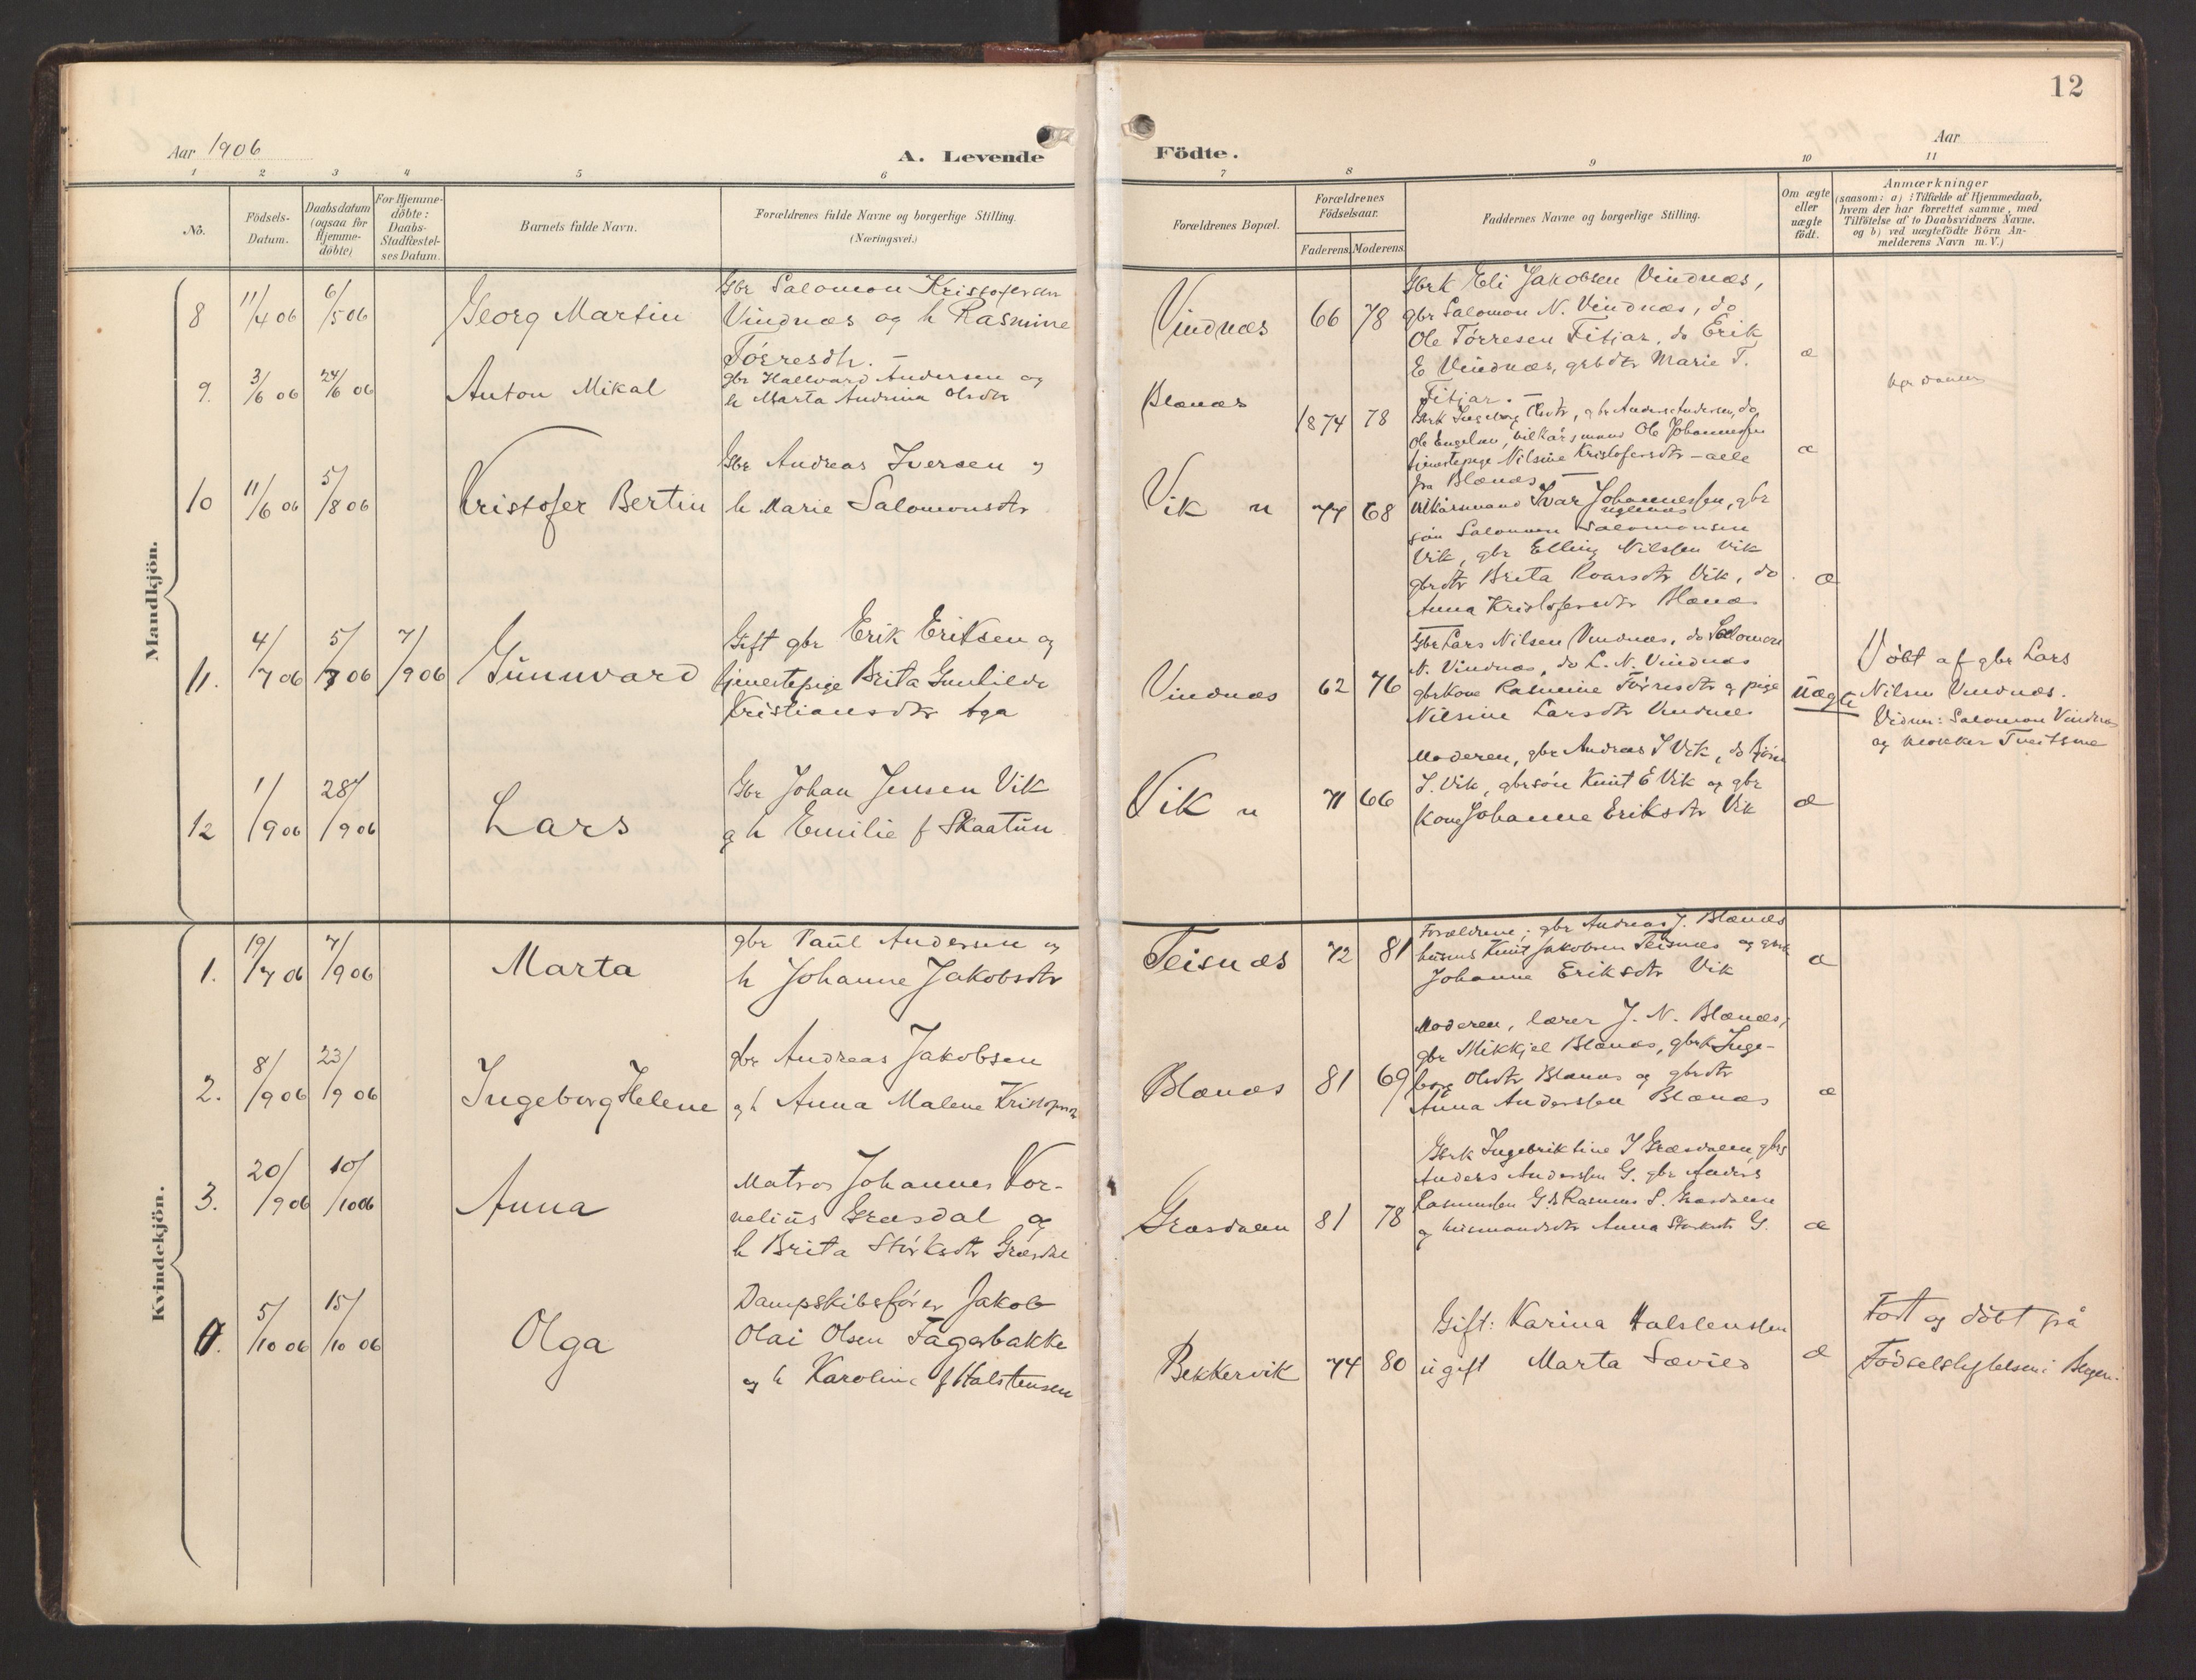 12
Aar 1906
A. Levende
Födte.
Aar
1 2 3 4 5 6 7 8 9 10 11
No.
Födsels-
Datum.
Daabsdatum
(ogsaa for
Hjemme-
döbte)
For Hjemme-
döbte:
Daabs-
Stadfæstel-
ses Datum.
Barnets fulde Navn.
Forældrenes fulde Navne og borgerlige Stilling.
(Næringsvei.)
Forældrenes Bopæl.
Forældrenes
Födselsaar.
Faderens. Moderens.
Faddernes Navne og borgerlige Stilling.
Om ægte
eller
uægte
födt.
Anmærkninger
(saasom: a) i Tilfælde af Hjemmedaab,
hvem der har forrettet samme, med
Tilföielse af to Daabsvidners Navne,
og b) ved uægtefödte Börn An-
melderens Navn m. V.)
Mandkjön.
8 11/4 06 6/5 06 Georg Martin
Gbr Salomon Kristofersen
Vindnæs og h Rasmine
Tórresdtr. —
Vindnæs 66 78
Gbrk Eli Jakobsen Vindnæs,
gbr Salomon N. Vindnæs, do
Ole Tórresen Fitjar, do Erik
E Vindnæs, grbdtr Marie T.
Fitjar. —
æ
9. 3/6 06 24/6 06 Anton Mikal
gbr Hallvard Andersen og
h Marta Andrina Olsdtr
Blænæs 1874 78
Gbrk Ingeborg Olsdtr, gbr Anders Andersen, do
Ole Engelsen, vilkårsmand Ole Johannessen
tjenestepige Nilsine Kristofersdtr — alle
fra Blænæs —
æ
10 11/6 06 5/8 06 Kristofer Bertin
Gbr Andreas Iversen og
h Marie Salomonsdtr
Vik n 74 68
Vilkårsmand Ivar Johannessen, gbr
søn Salomon Salomonsen
Vik, gbr Elling Nilssen Vik
gbrdtr Brita Roarsdtr Vik, do
Anna Kristofersdtr Blænæs
æ
11. 4/7 06 5/7 06 7/9 06 Gunnvard
Gift gbr Erik Eriksen og
tjenestepige Brita Gunhilda
Kristiansdtr Aga
Vindnæs 62 76
Gbr Lars Nilsen Vindnæs, do Salomon
N. Vindnæs, do L. N. Vindnæs
gbrkone Rasmine Tórresdtr og pige
Nilsine Larsdtr Vindnæs
Uægte
Döbt af gbr Lars
Nilsen Vindnæs.
Vidner: Salomon Vindnæs
og klokker Tveitsme
12 1/9 06 28/9 06 Lars
Gbr Johan Jensen Vik
og h Emilie f Skaatun
Vik n 71 66
Moderen, gbr Andreas I Vik, do Björn
J. Vik, gbrsön Knut E Vik og gbr
kone Johanne Eriksdtr Vik
æ
Kvindekjön.
1. 19/7 06 7/9 06 Marta
gbr Paul Andersen og
h Johanne Jakobsdtr
Teisnæs 72 81
Forældrene; gbr Andreas J. Blænæs
husms Knut Jakobsen Teisnæs og gbrk
Johanne Eriksdtr Vik
æ
2. 8/9 06 23/9 06 Ingeborg Helene
gbr Andreas Jakobsen
og h Anna Malene Kristofersdtr
Blænæs 81 69
Moderen, lærer J. N. Blænæs,
gbr Mikkjel Blænæs, gbrk Inge-
borg Olsdtr Blænæs og gbrdtr
Anna Anderssen Blænæs
æ
3. 20/9 06 10/10 06 Anna
Matros Johannes Kor-
nelius Græsdal og
h Brita Störksdtr Græsdal
Græsdalen 81 78
Gbrk Ingebriktine I Græsdalen, gbrs
Anders Anderssen G. gbr Anders
Rasmussen G. do Rasmus S. Græsdalen
og husmandsdtr Anna Störksdtr G.
æ
4. 5/10 06 15/10 06 Olga
Dampskibsförer Jakob
Olai Olsen Fagerbakke
og h Karoline f Halstensen
Bekkervik 74 80
Gift: Karina Halstenssen
ugift Marta Sævied
æ
Fört og döbt på
Födselsstiftelsen i Bergen.